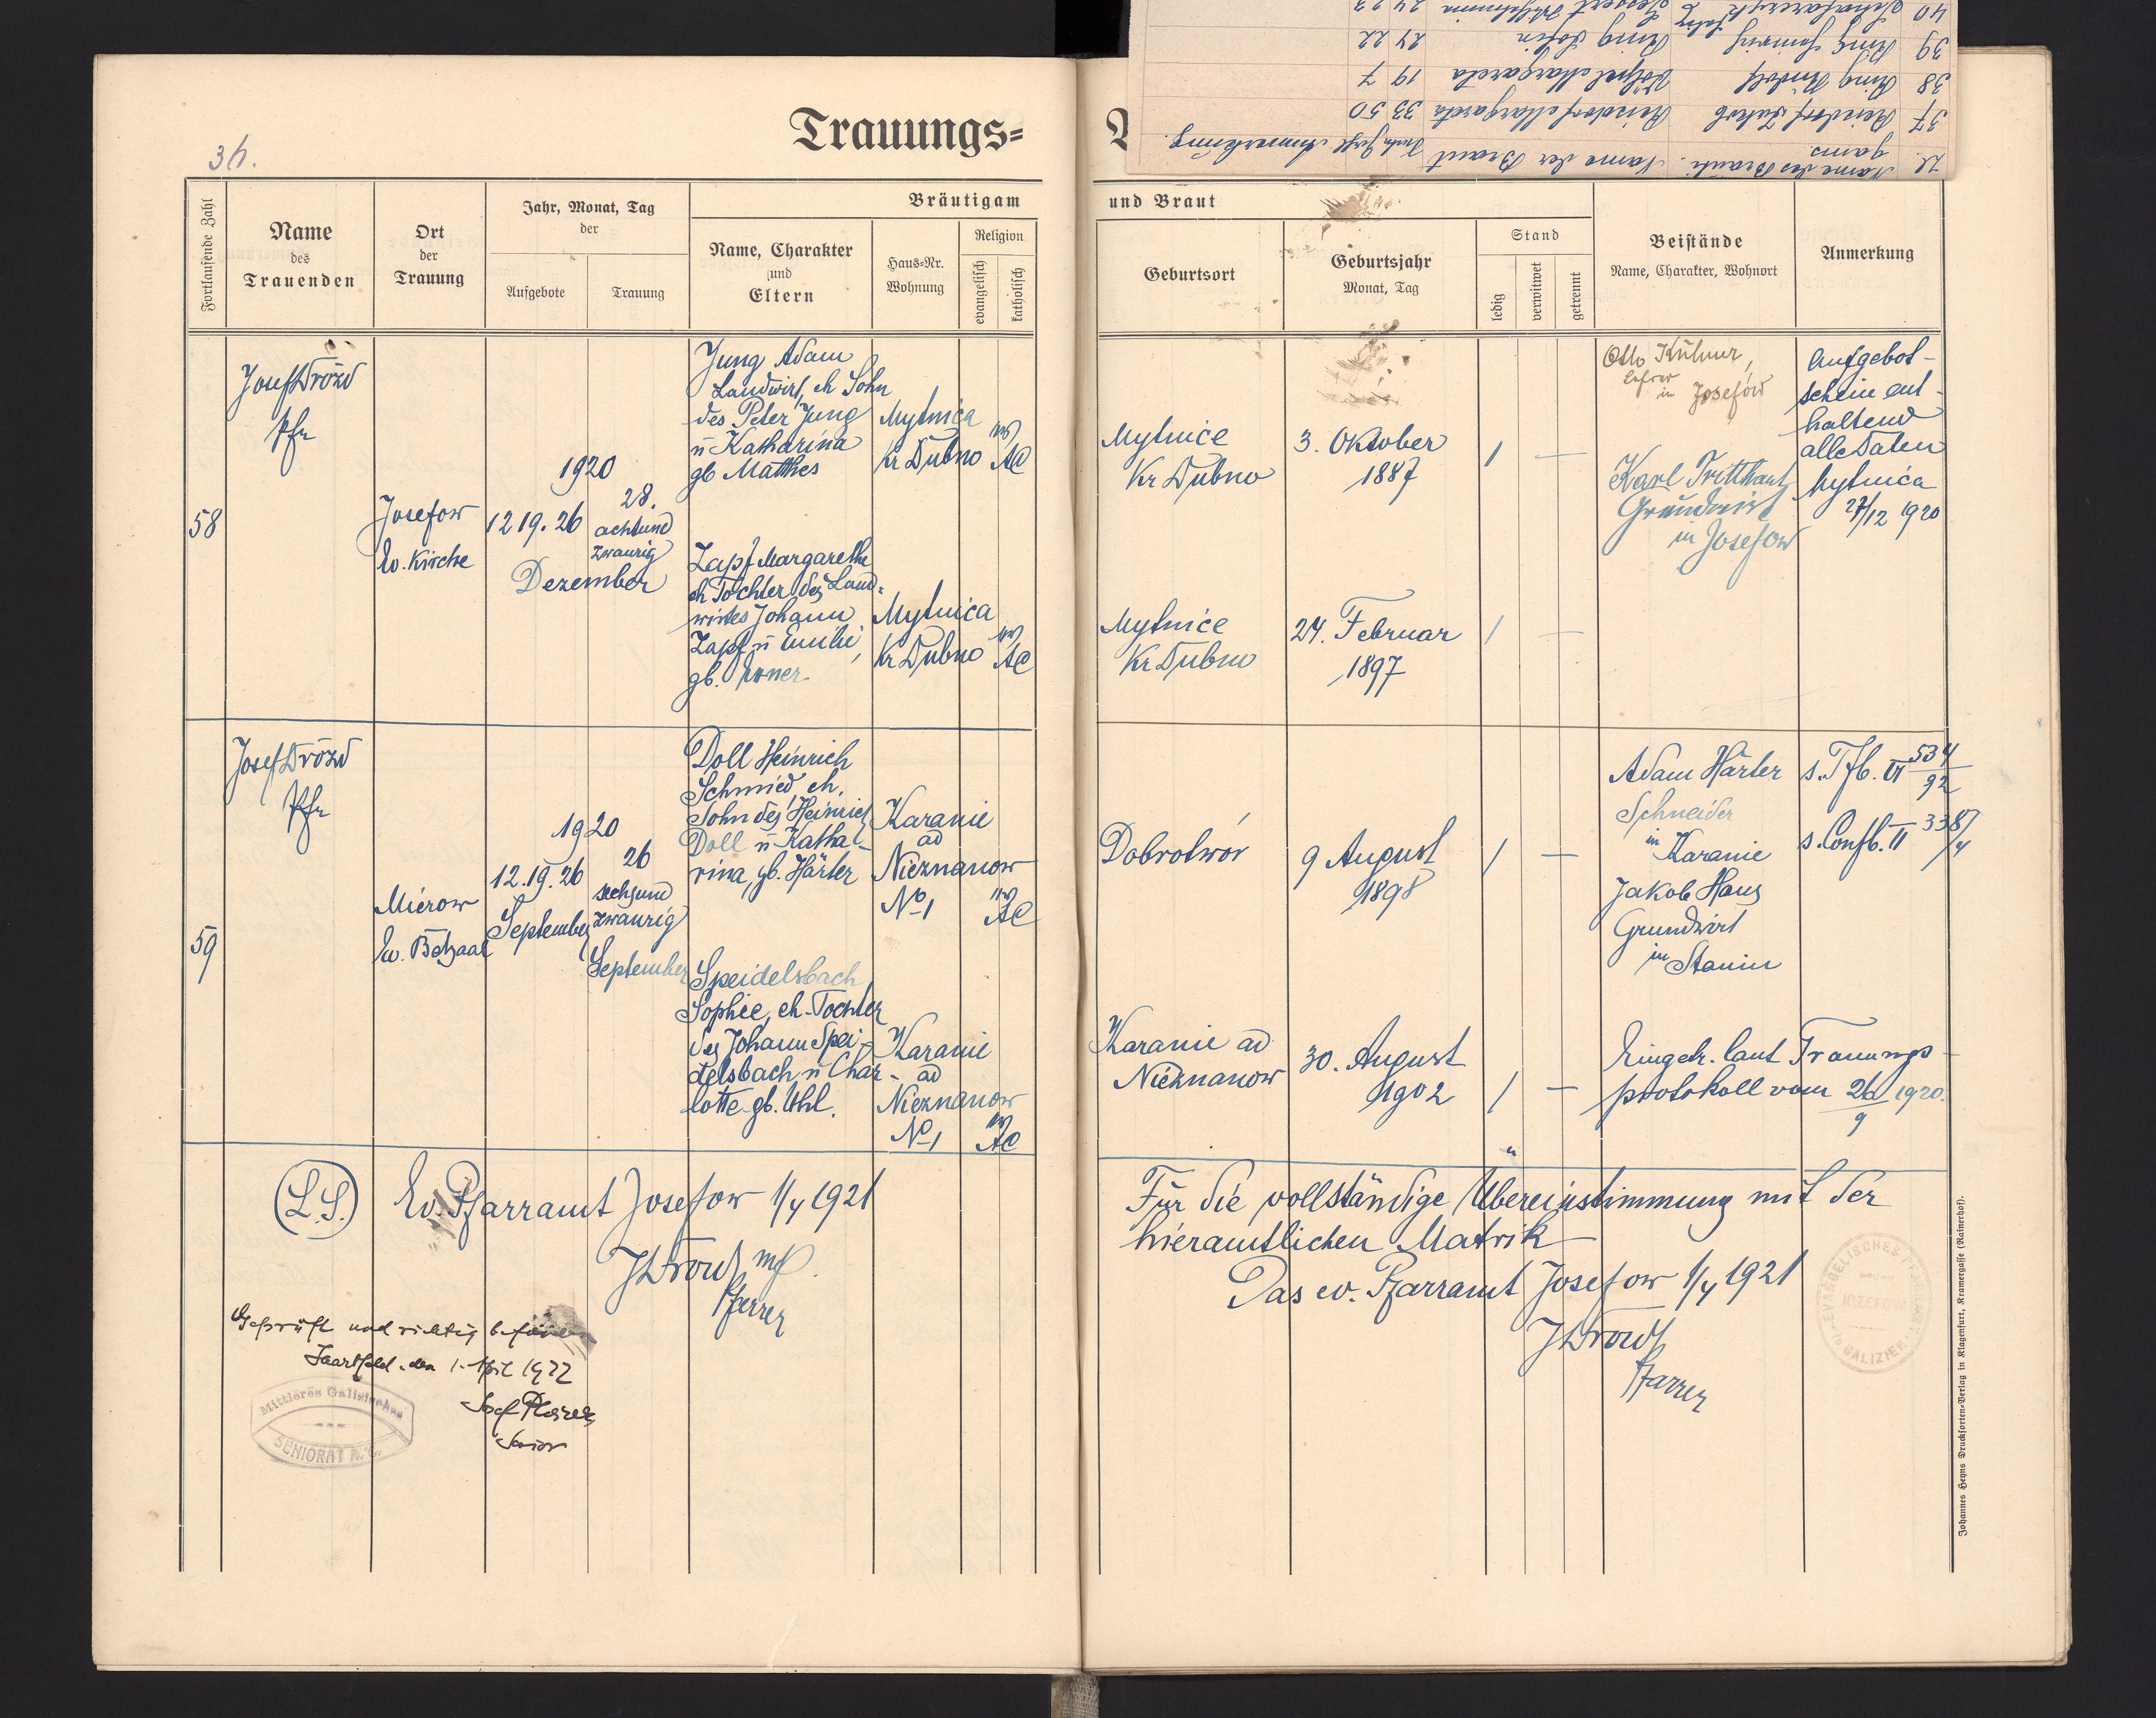 36.
Trauungs=
Fortlaufende Zahl
Name
des
Trauenden
Ort
der
Trauung
Jahr, Monat, Tag
der
Aufgebote
Trauung
Bräutigam
Name, Charakter
und
Eltern
Haus=Nr.
Wohnung
Religion
evangelisch
katholisch
und Braut
Geburtsort
Geburtsjahr
Monat, Tag
Stand
ledig
verwitwet
getrennt
Beistände
Name, Charakter, Wohnort
Anmerkung
58
Josef Drózd
Pfr
Josefow
Ev. Kirche
1920
12 19. 26
28.
achtund
zwanzig
Dezember
Jung Adam
Landwirt, eh Sohn
des Peter Jung
u Katharina
gb Matthes
Mytnica
Kr Dubno
AC
Zapf Margarethe
eh Tochter des Land-
wirtes Johann
Zapf u Emilie,
gb.
Mytnica
Kr Dubno
AC
Mytnice
Kr Dubno
3. Oktober
1887
Mytnice
Kr Dubno
24. Februar
1897
Otto Kühner,
Lehrer
in Josefów
Karl Tritthart
Grundwirt
in Josefow
Aufgebot-
schein ent-
haltend
alle Daten
Mytnica
27/12 1920
59
Josef Drózd
Pfr
Mierow
Ev. Betsaal
1920
12.19.26
September
26
sechsund
zwanzig
September
Doll Heinrich
Schmied, eh.
Sohn des Heinrich
Doll u Katha-
rina, gb. Härter
Karanie
ad
Nieznanow
No 1
AC
Speidelsbach
Sophie, eh. Tochter
des Johann Spei-
delsbach u Char-
lotte gb. Uhl.
Karanie
ad
Nieznanow
No 1
AC
Dobrotwór
9 August
1898
Karanie ad
Nieznanow
30. August
1902
Adam Härter
Schneider
in Karanie
Jakob Haus
Grundwirt
in Stanin
s. Tfb. VI 534/92
s. Confb. II 338/4
Eingetr. laut Trauungs-
protokoll vom 26/9 1920.
L.S.
Ev. Pfarramt Josefow 1/4 1921
JDrozd mp.
Pfarrer
Geprüft und richtig befunden
den 1. April 1922
Josef
Senior
Mittleres Galizisches
SENIORAT A.C.
Für die vollständige Übereinstimmung mit der
hieramtlichen Matrik
Das ev. Pfarramt Josefow 1/4 1921
JDrozd
Pfarrer
EVANGELISCHES
JOZEFOW
GALIZIEN
Johannes Heyns Drucksorten=Verlag in Klagenfurt, Kramergasse (Rainerhof).
Zl.
Name des Bräuti-
gams
Name der Braut
Anmerkung
37
Reindorf Jakob
Reindorf Margareta
33 50
38
Ring Rudolf
Margareta
19 7
39
Ring Heinrich
Ring Sofia
24 22
40
24 23